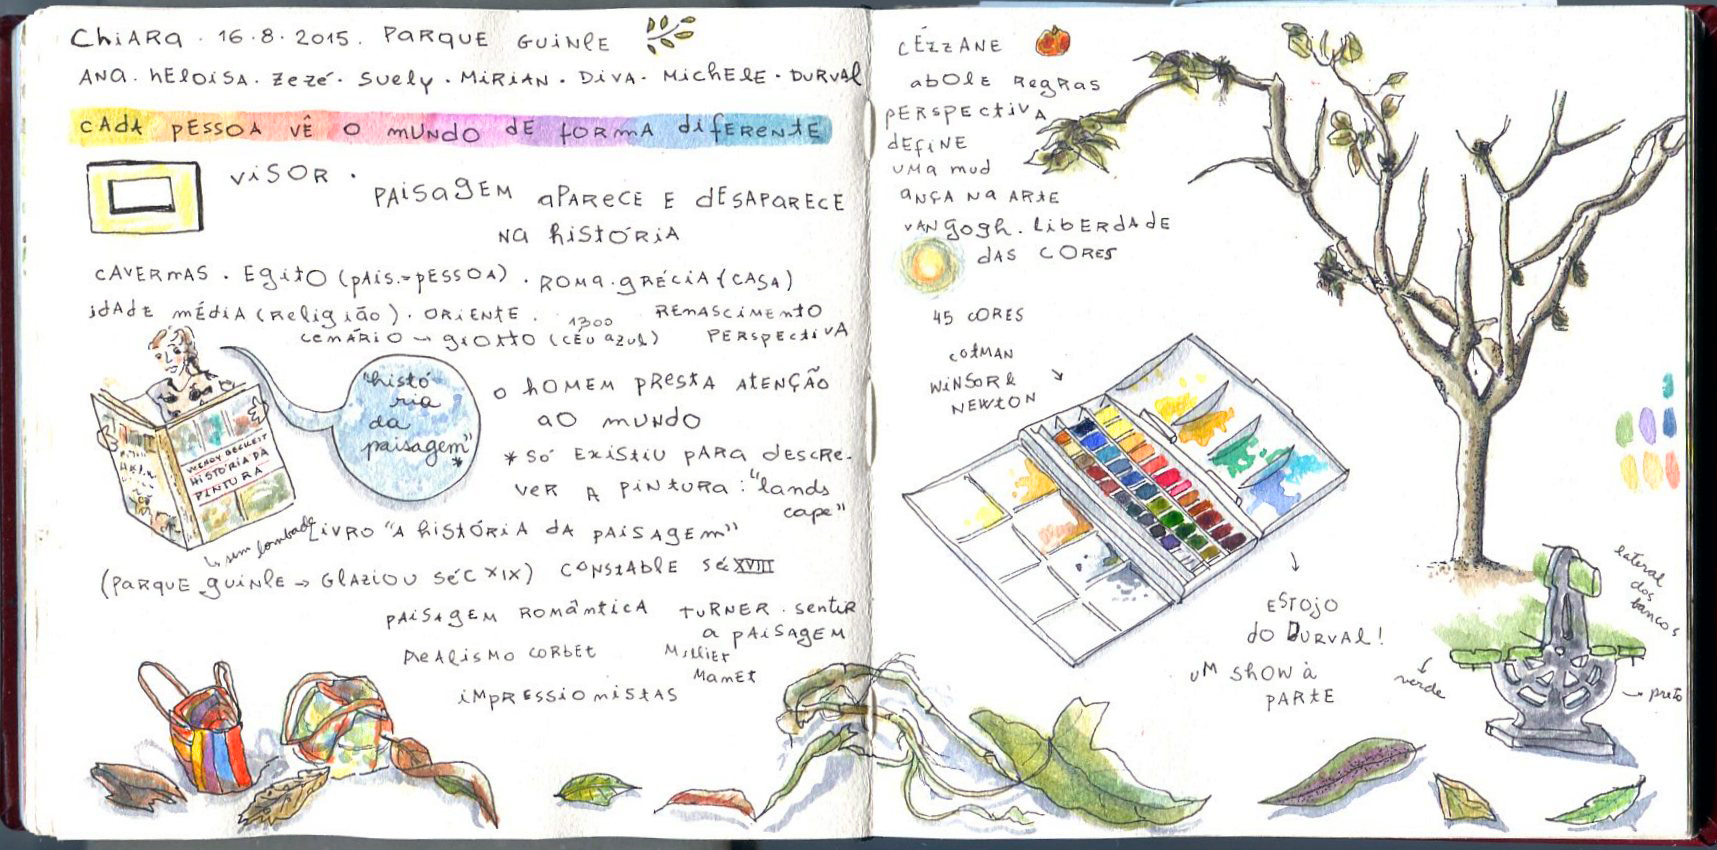 CHiARA · 16·8·2015. PARQUE GUINlE
ANA · hELOISA · Zezé · Suely · MiRiAN · DivA · MichElE · DURVAl
CAdA PESSOA VÊ O MUNDO DE fORMA difERENtE
VISOR ·
PAISAGEM APARECE E DESAPARECE
NA hiStÓRiA
CAVERNAS · EgitO (PAIS.=PESSOA) · ROMA · gRÉCIA (CASA)
IDADE MÉDIA (ReligIão) · ORiENtE · 1300 RENASCIMENTO
CENÁRIO → giOttO (CÉU AZUl) PERSPECtivA
"histó
ria
da
paisagem"*
O hOMEM PREStA AtENÇÃO
AO MUNDO
* SÓ EXiStiU PARA DESCRE-
VER A PiNtURA: "lands
cape"
WENDY BECKETT
HiStÓRiA DA
PiNtURA
↳ sem lombada
LIVRO "A hiStÓRiA DA PAISAGEM"
(PARQUE GUiNlE → GlAZIOU SÉC XIX) CONStABlE SÉC XVIII
PAISAGEM ROMântICA tURNER · SENtiR
A PAISAGEM
REAliSMO CORbEt Millièt
MANEt
iMPRESSiONiStAS
CÉZZANE
AbOlE REgRAS
PERSPECtivA
dEfiNE
UMA MUD
ANÇA NA ARtE
VAN gOgh. LibERDADE
DAS CORES
45 CORES
COtMAN
WiNSOR &
NEWtON
EStOJO
DO DURVAl!
UM ShOW à
PARtE
lateral
dos
bancos
verde
preto